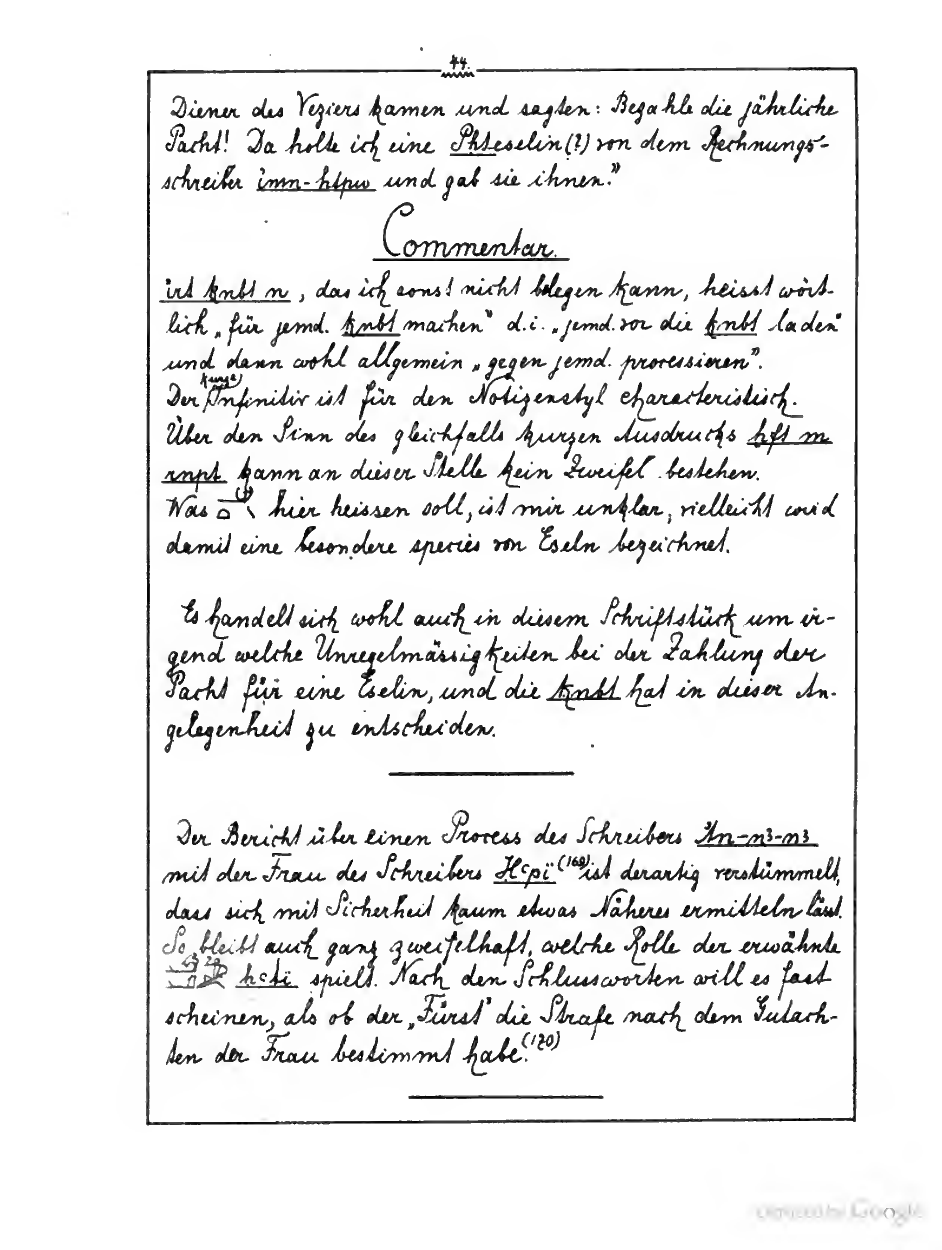 44.
Diener des Veziers kamen und sagten: Bezahle die jährliche
Pacht! Da holte ich eine Phteselin (?) von dem Rechnungs-
schreiber imn-htpw und gab sie ihnen."
Commentar.
irt knbt n, das ich sonst nicht belegen kann, heisst wört-
lich „für jemd. knbt machen" d.i. „jemd. vor die knbt laden"
und dann wohl allgemein „gegen jemd. processieren".
kurze)
Der Infinitiv ist für den Notizenstyl characteristisch.
Über den Sinn des gleichfalls kurzen Ausdrucks hft m
rnpt kann an dieser Stelle kein Zweifel bestehen.
Was hier heissen soll, ist mir unklar, vielleicht wird
damit eine besondere species von Eseln bezeichnet.
Es handelt sich wohl auch in diesem Schriftstück um ir-
gend welche Unregelmässigkeiten bei der Zahlung der
Pacht für eine Eselin, und die knbt hat in dieser An-
gelegenheit zu entscheiden.
Der Bericht über einen Process des Schreibers
mit der Frau des Schreibers Hcpi ist derartig verstümmelt,
dass sich mit Sicherheit kaum etwas Näheres ermitteln lässt.
So bleibt auch ganz zweifelhaft, welche Rolle der erwähnte
spielt. Nach den Schlussworten will es fast
scheinen, als ob der „Fürst" die Strafe nach dem Gutach-
ten der Frau bestimmt habe. (170)
Digitized by Google